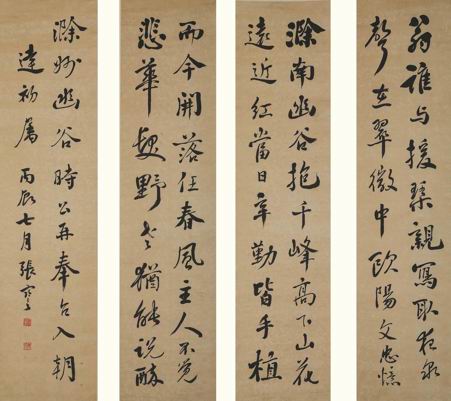 翁誰与援琴親寫取夜泉
聲在翠微中歐陽文忠憶
滁南幽谷抱千峰高下山花
遠近紅當日辛勤皆手植
而今開落任春風主人不覺
悲華髮野老猶能說醉
滁州幽谷時公再奉召入朝
達初屬 丙辰七月 張謇